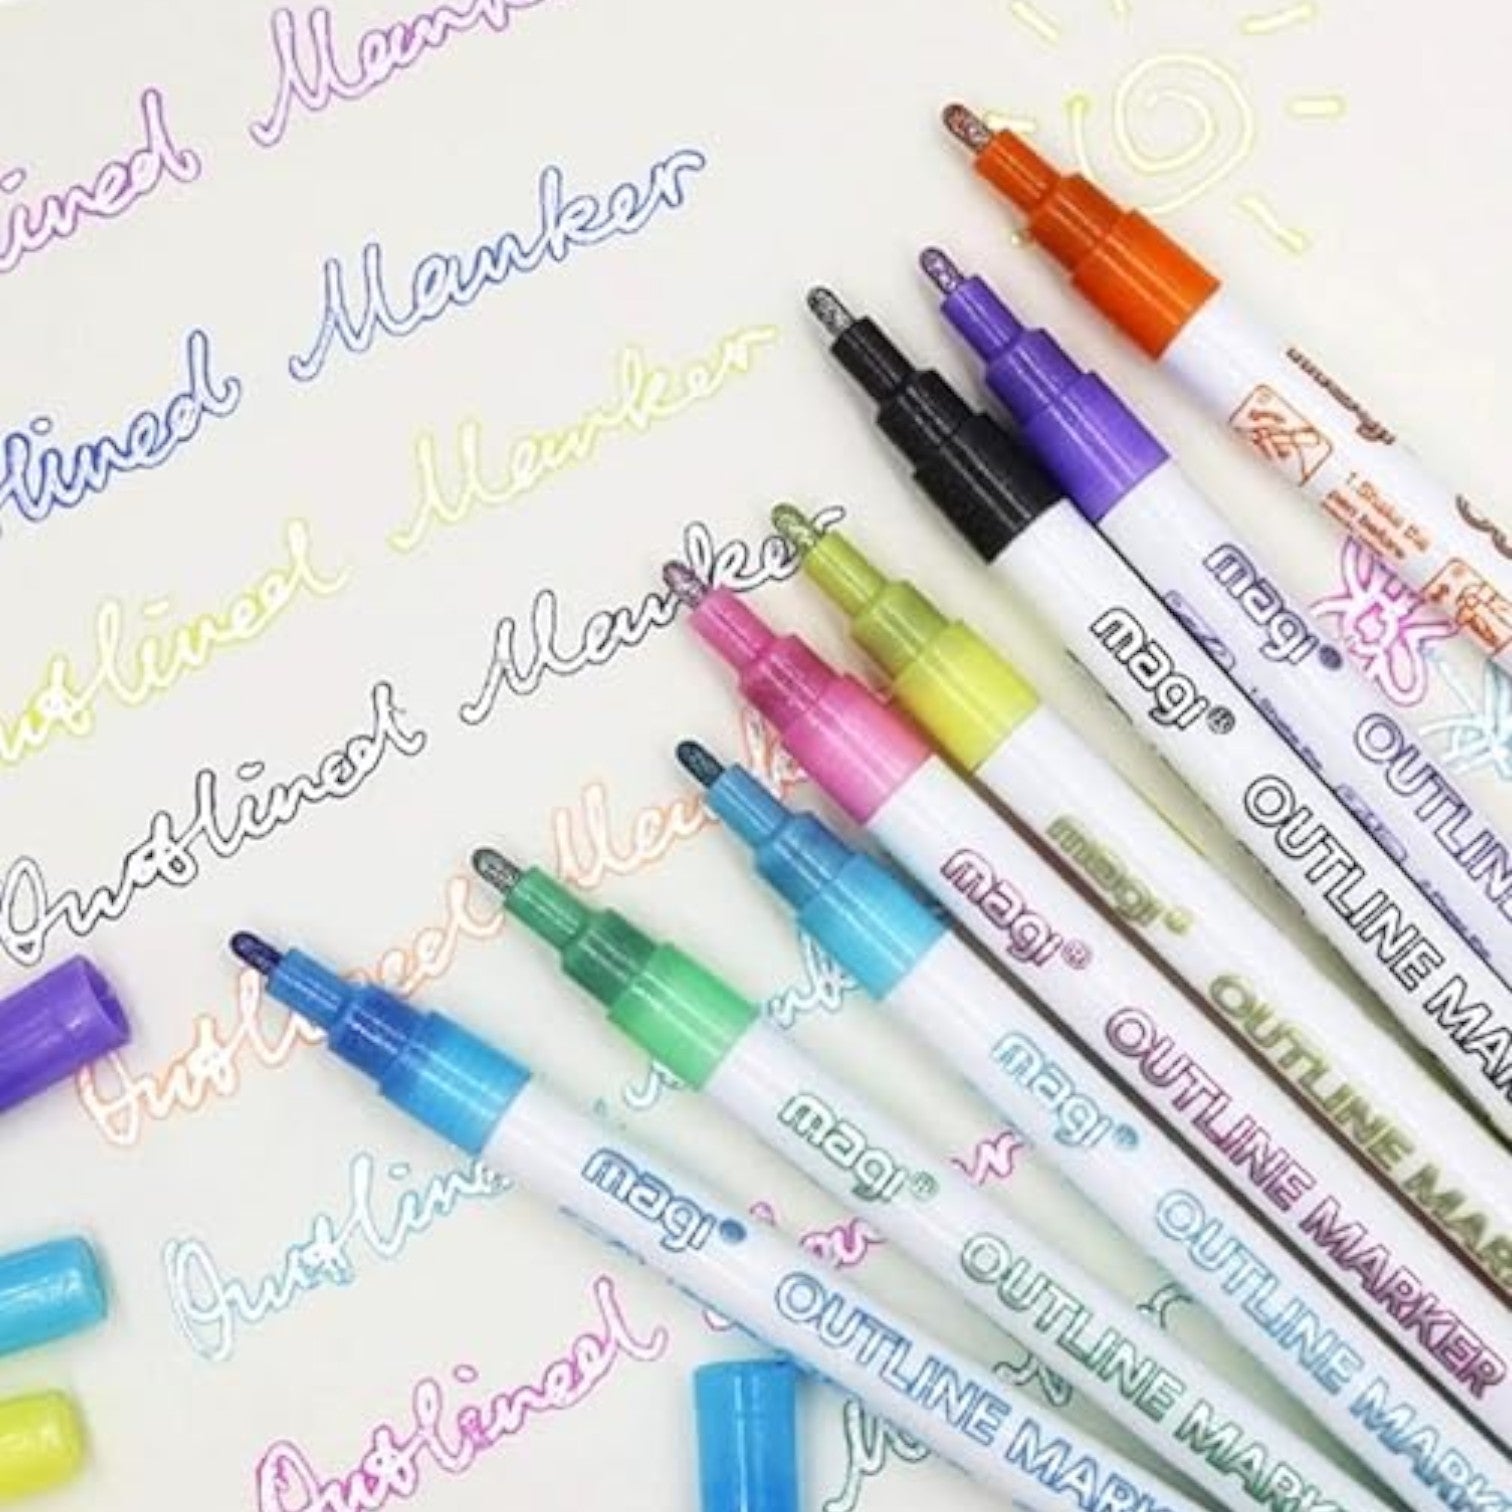 lined Marker
lined Marker
Outlined Marker
Outlined Marker
Outlined Marker
Outline
Outlined
magi
OUTLINE MARK
magi®
OUTLINE MARK
magi®
OUTLINE MARK
magi®
OUTLINE MARKER
magi®
OUTLINE MARK
magi®
OUTLINE MA
magi
OUTLIN
1.Shake
pen before